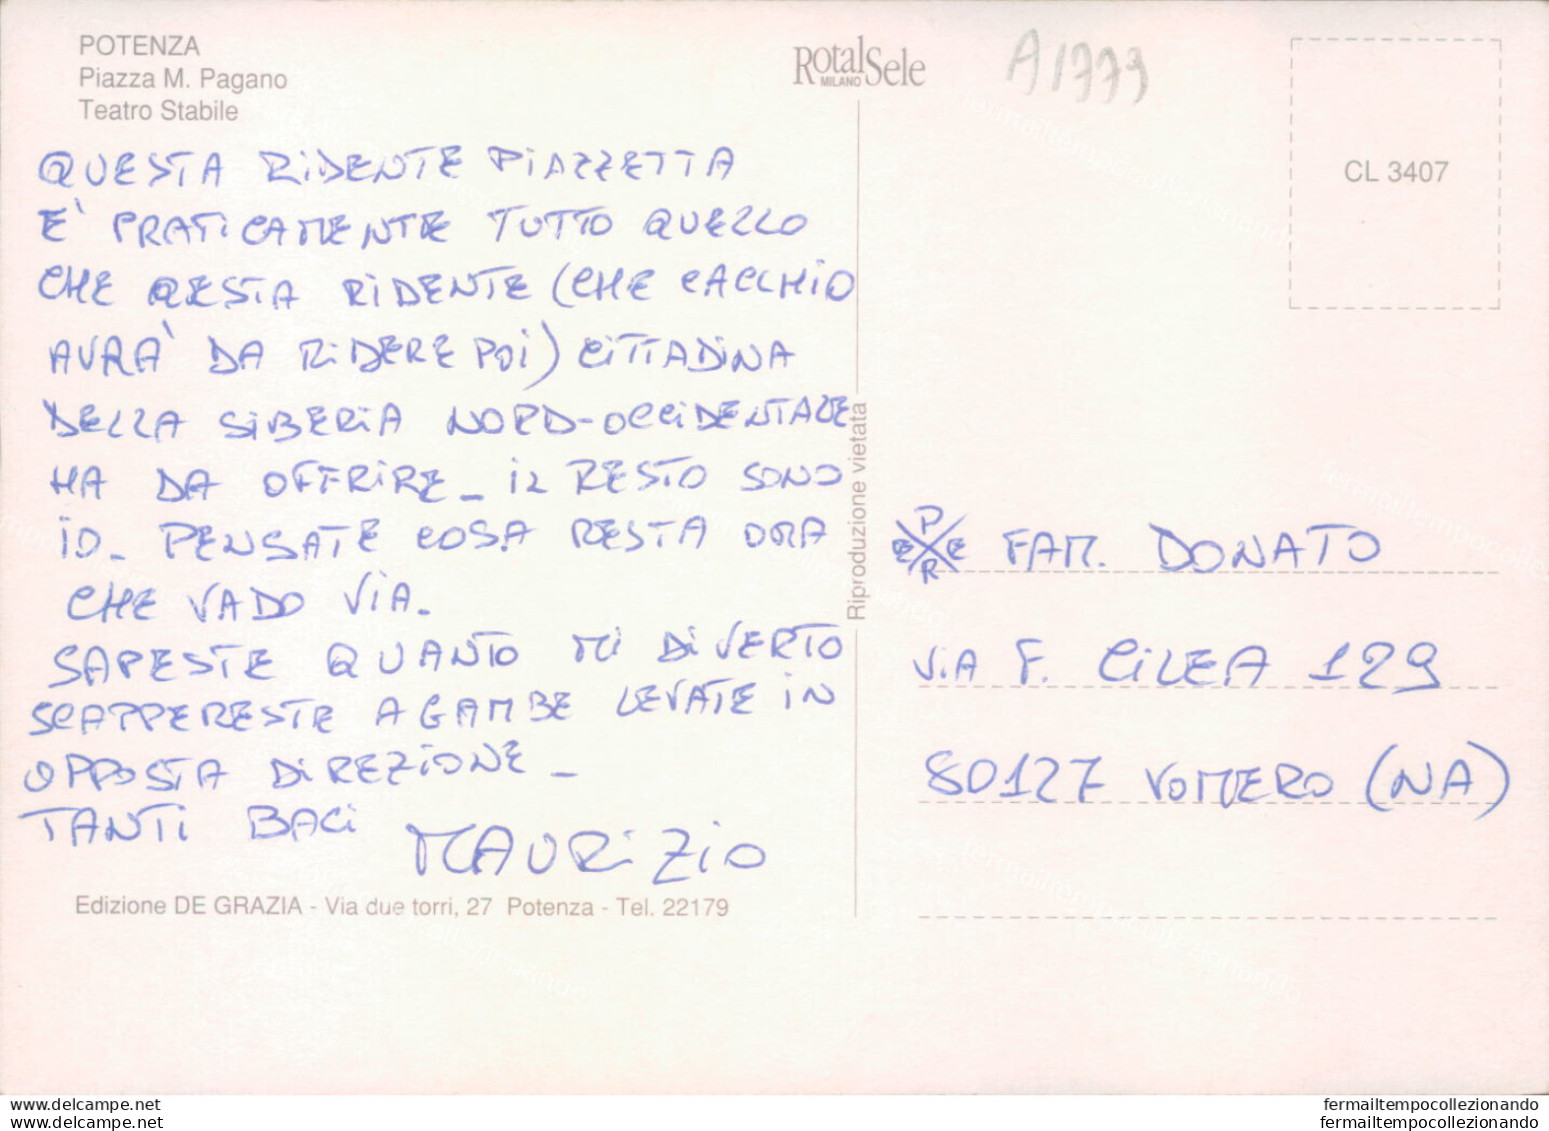 POTENZA
Piazza M. Pagano
Teatro Stabile
RotalSele
MILANO
A1779
CL 3407
QUESTA RIDENTE PIAZZETTA
E' PRATICAMENTE TUTTO QUELLO
CHE QESTA RIDENTE (CHE CACCHIO
AVRA' DA RIDERE POI) CITTADINA
DELLA SIBERIA NORD-OCCIDENTALE
HA DA OFFRIRE_ IL RESTO SONO
IO_ PENSATE COSA RESTA ORA
CHE VADO VIA.
SAPESTE QUANTO MI DIVERTO
SCAPPERESTE A GAMBE LEVATE IN
OPPOSTA DIREZIONE_
TANTI BACI MAURIZIO
Edizione DE GRAZIA - Via due torri, 27 Potenza - Tel. 22179
Riproduzione vietata
PER E FAM. DONATO
VIA F. CILEA 129
80127 VOMERO (NA)
www.delcampe.net
www.delcampe.net
fermailtempocollezionando
fermailtempocollezionando